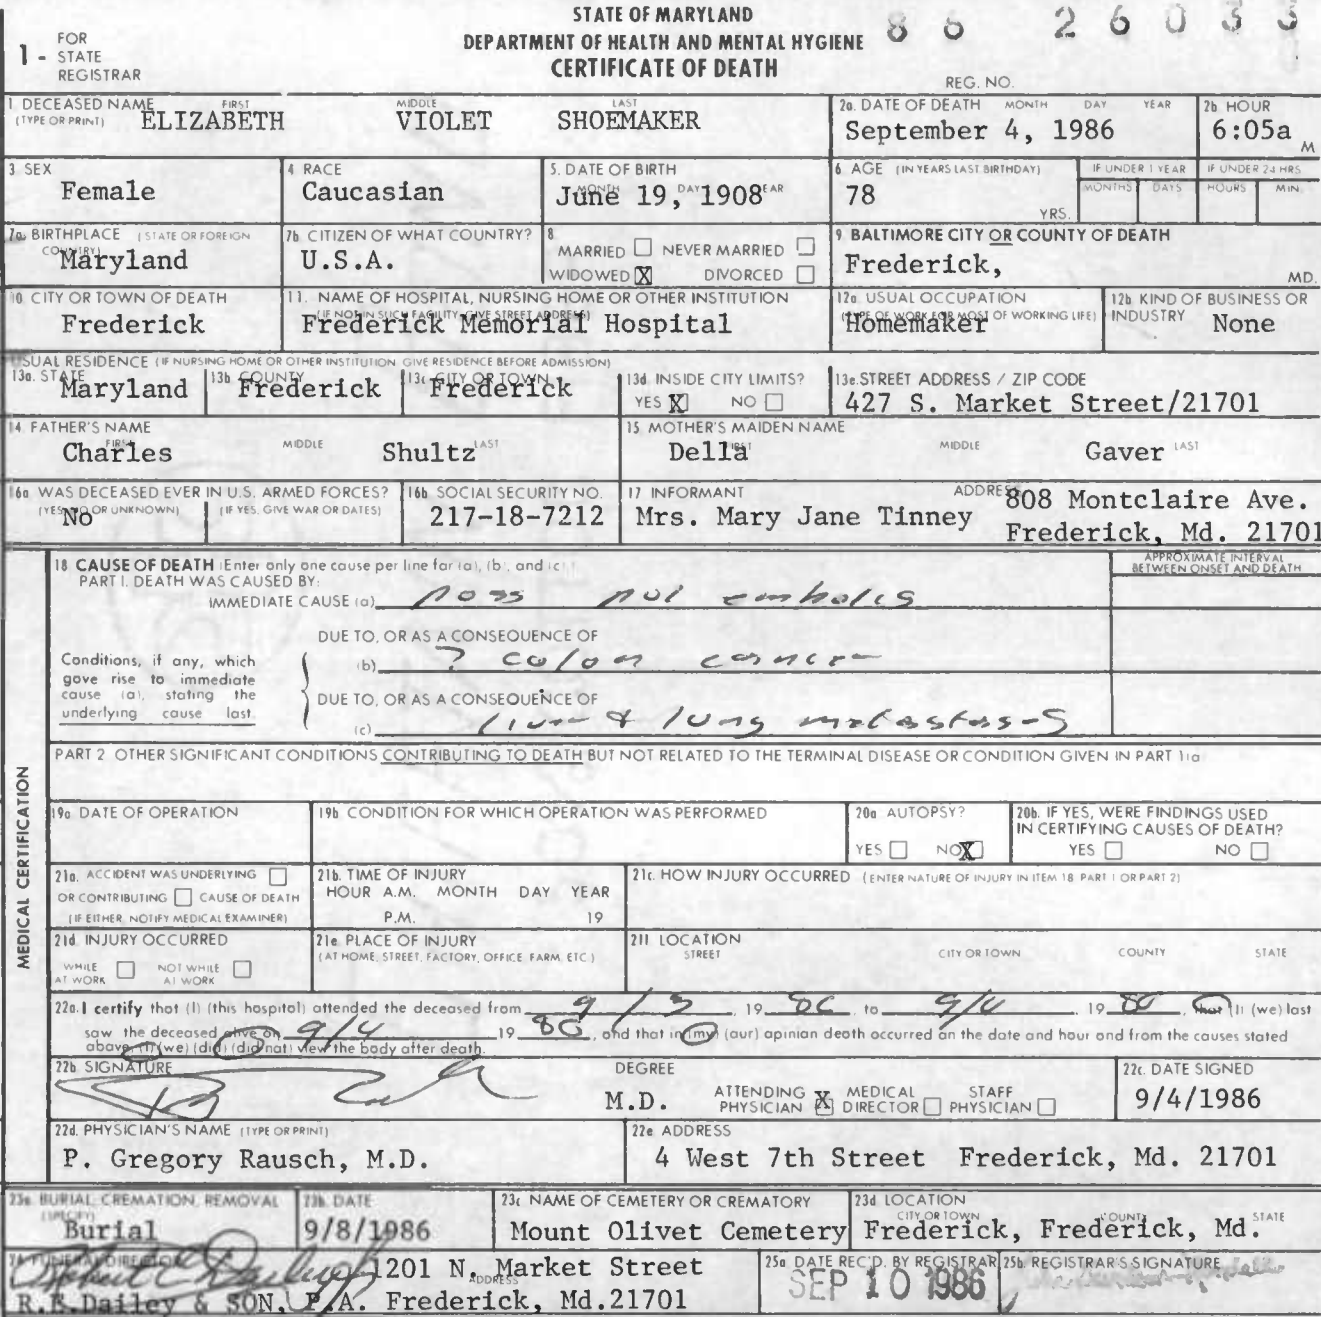 STATE OF MARYLAND
DEPARTMENT OF HEALTH AND MENTAL HYGIENE
CERTIFICATE OF DEATH
86 26033
1 - FOR STATE REGISTRAR
REG. NO.
1 DECEASED NAME (TYPE OR PRINT) FIRST MIDDLE LAST
ELIZABETH VIOLET SHOEMAKER
2a. DATE OF DEATH MONTH DAY YEAR
September 4, 1986
2b HOUR
6:05a M
3 SEX
Female
4 RACE
Caucasian
5. DATE OF BIRTH MONTH DAY YEAR
June 19, 1908
6 AGE (IN YEARS LAST BIRTHDAY)
78 YRS.
IF UNDER 1 YEAR MONTHS DAYS
IF UNDER 24 HRS HOURS MIN.
7a. BIRTHPLACE (STATE OR FOREIGN COUNTRY)
Maryland
7b CITIZEN OF WHAT COUNTRY?
U.S.A.
8 MARRIED NEVER MARRIED
WIDOWED X DIVORCED
9 BALTIMORE CITY OR COUNTY OF DEATH
Frederick, MD.
10 CITY OR TOWN OF DEATH
Frederick
11. NAME OF HOSPITAL, NURSING HOME OR OTHER INSTITUTION
(IF NOT IN SUCH FACILITY, GIVE STREET ADDRESS)
Frederick Memorial Hospital
12a. USUAL OCCUPATION
(TYPE OF WORK FOR MOST OF WORKING LIFE)
Homemaker
12b KIND OF BUSINESS OR INDUSTRY
None
USUAL RESIDENCE (IF NURSING HOME OR OTHER INSTITUTION GIVE RESIDENCE BEFORE ADMISSION)
13a. STATE
Maryland
13b COUNTY
Frederick
13c CITY OR TOWN
Frederick
13d. INSIDE CITY LIMITS?
YES X NO
13e. STREET ADDRESS / ZIP CODE
427 S. Market Street/21701
14. FATHER'S NAME FIRST MIDDLE LAST
Charles Shultz
15 MOTHER'S MAIDEN NAME FIRST MIDDLE LAST
Della Gaver
16a WAS DECEASED EVER IN U.S. ARMED FORCES?
(YES, NO OR UNKNOWN) (IF YES, GIVE WAR OR DATES)
No
16b SOCIAL SECURITY NO.
217-18-7212
17 INFORMANT ADDRESS
Mrs. Mary Jane Tinney 808 Montclaire Ave.
Frederick, Md. 21701
MEDICAL CERTIFICATION
18 CAUSE OF DEATH (Enter only one cause per line for (a), (b), and (c).)
APPROXIMATE INTERVAL BETWEEN ONSET AND DEATH
PART I. DEATH WAS CAUSED BY:
IMMEDIATE CAUSE (a) poss pul embolis
DUE TO, OR AS A CONSEQUENCE OF
(b) ? colon cancer
DUE TO, OR AS A CONSEQUENCE OF
(c) liver & lung metastases
Conditions, if any, which
gave rise to immediate
cause (a), stating the
underlying cause last.
PART 2 OTHER SIGNIFICANT CONDITIONS CONTRIBUTING TO DEATH BUT NOT RELATED TO THE TERMINAL DISEASE OR CONDITION GIVEN IN PART 1(a)
19a DATE OF OPERATION
19b CONDITION FOR WHICH OPERATION WAS PERFORMED
20a AUTOPSY?
YES NO X
20b. IF YES, WERE FINDINGS USED
IN CERTIFYING CAUSES OF DEATH?
YES NO
21a. ACCIDENT WAS UNDERLYING
OR CONTRIBUTING CAUSE OF DEATH
(IF EITHER, NOTIFY MEDICAL EXAMINER)
21b. TIME OF INJURY
HOUR A.M. MONTH DAY YEAR
P.M. 19
21c. HOW INJURY OCCURRED (ENTER NATURE OF INJURY IN ITEM 18 PART 1 OR PART 2)
21d INJURY OCCURRED
WHILE AT WORK NOT WHILE AT WORK
21e PLACE OF INJURY
(AT HOME, STREET, FACTORY, OFFICE, FARM, ETC.)
21f LOCATION
STREET CITY OR TOWN COUNTY STATE
22a. I certify that (I) (this hospital) attended the deceased from 9/3, 1986, to 9/4 1986, that (I) (we) last
saw the deceased alive on 9/4 1986, and that in (my) (our) opinion death occurred on the date and hour and from the causes stated
above, (I) (we) (did) (did not) view the body after death.
22b SIGNATURE
DEGREE
M.D.
ATTENDING PHYSICIAN X MEDICAL DIRECTOR STAFF PHYSICIAN
22c. DATE SIGNED
9/4/1986
22d. PHYSICIAN'S NAME (TYPE OR PRINT)
P. Gregory Rausch, M.D.
22e ADDRESS
4 West 7th Street Frederick, Md. 21701
23a BURIAL, CREMATION, REMOVAL (SPECIFY)
Burial
23b. DATE
9/8/1986
23c NAME OF CEMETERY OR CREMATORY
Mount Olivet Cemetery
23d LOCATION
CITY OR TOWN COUNTY STATE
Frederick, Frederick, Md.
24 FUNERAL DIRECTOR ADDRESS
1201 N. Market Street
R.E.Dailey & SON, P.A. Frederick, Md.21701
25a DATE REC'D. BY REGISTRAR
SEP 10 1986
25b. REGISTRAR'S SIGNATURE